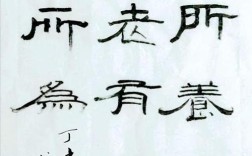 所養
老有
所為
丁